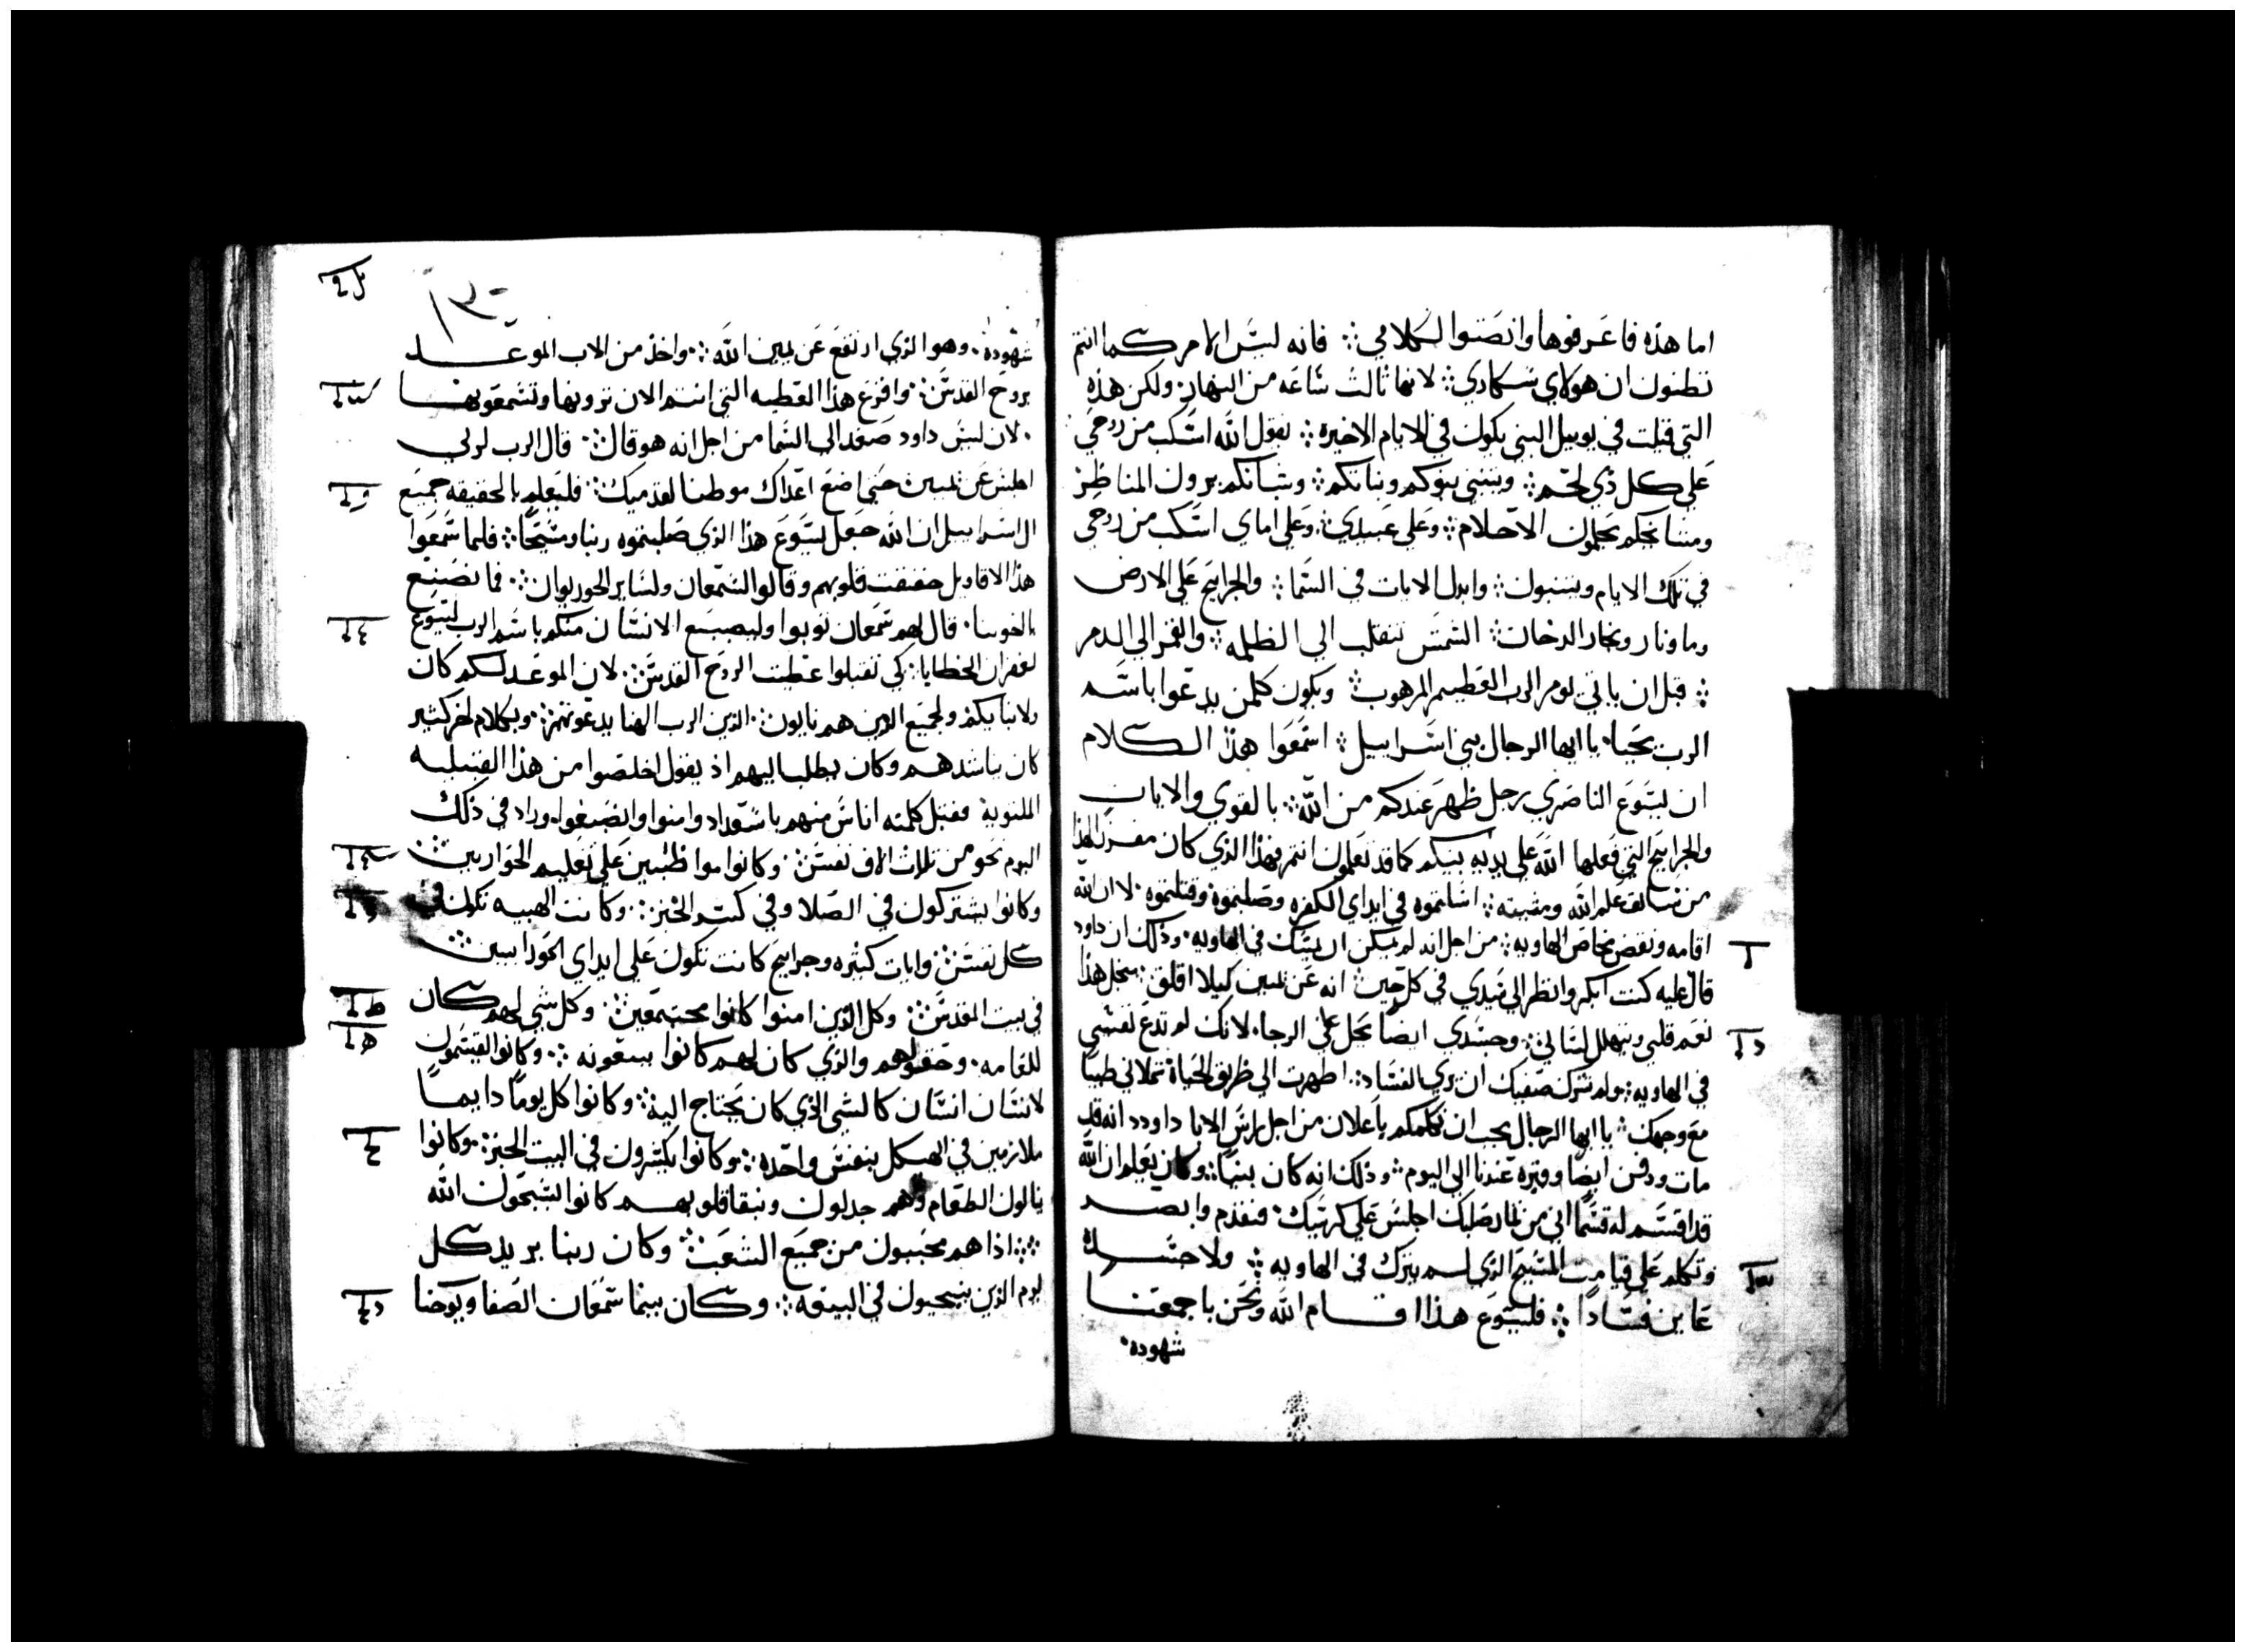 اما هذه فاعرفوها وانصتوا لكلامي ፨ فانه ليس الامر كما انتم
تظنون ان هولاي سكاري ፨ لانها ثالث ساعه من النهار ولكن هذه
التي قيلت في يوييل النبي يكون في الايام الاخيره ፨ يقول الله اسكب من روحي
على كل ذي لحم ፨ ويتنبي بنوكم وبناتكم ፨ وشبانكم يرون المناظر
ومشايخكم يحلمون الاحلام ፨ وعلى عبيدي ፨ وعلى اماي اسكب من روحي
في تلك الايام ويتنبون ፨ وابدل الايات في السما ፨ والجرايح على الارض
دما ونار وبخار الدخان ፨ الشمس تنقلب الي الظلمه ፨ والقمر الي الدم
፨ قبل ان ياتي يوم الرب العظيم المرهوب ፨ ويكون كلمن يدعوا باسم
الرب يحيا ٠ يا ايها الرجال بني اسراييل ፨ اسمعوا هذا الكلام
ان ليسوع الناصري رجل ظهر عندكم من الله ፨ بالقوي والايات
والجرايح التي فعلها الله على يديه بينكم كما قد تعلمون انتم فهذا الذي كان مفرزا لهذا
من سالف علم الله ومشيته ፨ اسلمتموه في ايداي الكفره وصلبتموه وقتلتموه ٠ لان الله
اقامه ونقض مخاض الهاويه ፨ من اجل انه لم يمكن ان يمسك في الهاويه ٠ وذلك ان داود
قال عليه كنت ابكر وانظر الي سيدي في كل حين ፨ انه عن يميني كيلا اقلق ፨ بحل هذا
نعم قلبي وتهلل لساني ፨ وجسدي ايضا يحل على الرجا ٠ لانك لم تدع نفسي
في الهاويه ፨ ولم تترك صفيك ان يري الفساد ፨ اظهرت الي طريق الحياة تملاني طيبا
مع وجهك ፨ يا ايها الرجال يجب ان نكلمكم باعلان من اجل راس الابا داوود انه قد
مات ودفن ايضا وقبره عندنا الي اليوم ፨ وذلك انه كان نبيا ፨ وكان يعلم ان الله
قد اقسم له قسما اني من ثمار صلبك اجلس على كرسيك ٠ فتقدم وابصر
وتكلم على قيامت المسيح الذي لم يترك في الهاويه ፨ ولا جسده
عاين فسادا ፨ فليسوع هذا اقام الله ونحن باجمعنا
شهوده ٠
١٣٠
شهوده ٠ وهو الذي ارتفع عن يمين الله ፨ واخذ من الاب الموعد
بروح القدس ፨ وافرغ هذا العطيه التي انتم الان ترونها وتسمعونها
٠ لان ليس داود صعد الي السما من اجل انه هو قال ፨ قال الرب لربي
اجلس عن يميني حتى اضع اعداك موطيا لقدميك ፨ فليعلم بالحقيقه جميع
ال اسراييل ان الله جعل ليسوع هذا الذي صلبتموه ربا ومسيحا ፨ فلما سمعوا
هذا الاقاويل خفقت قلوبهم وقالوا لسمعان ولساير الحورايون ፨ فما نصنع
يا اخوتنا ٠ قال لهم سمعان توبوا وليصبغ الانسان منكم باسم الرب ليسوع
لغفران الخطايا ፨ كي تقبلوا عطيت الروح القدس ፨ لان الموعد لكم كان
ولابنايكم ولجميع الذين هم نايون ፨ الذين الرب الهنا يدعوهم ፨ وبكلام اخر كثير
كان يناشدهم وكان يطلب اليهم اذ يقول اخلصوا من هذا القبيله
الملتويه فقبل كلمته اناس منهم باستعداد وامنوا وانصبغوا وزاد في ذلك
اليوم نحو من ثلاث الاف نفس ፨ وكانوا مواظبين على تعليم الحواريين ፨
وكانوا يشتركون في الصلا وفي كسر الخبز ፨ وكانت الهيبه تكون في
كل نفس ፨ وايات كثيره وجرايح كانت تكون على ايداي الحوراييين ፨
في بيت المقدس ፨ وكل الذين امنوا كانوا مجتمعين ፨ وكل شي لهم كان
للعامه ٠ وحقولهم والذي كان لهم كانوا يبيعونه ፨ وكانوا يقسمون
لانسان انسان كالشي الذي كان يحتاج اليه ፨ وكانوا كل يوما دايما
ملازمين في الهيكل بنفس واحده ፨ وكانوا يكسرون في البيت الخبز ፨ وكانوا
ينالون الطعام وهم جدلون وبنقا قلوبهم كانوا يسبحون الله
፨ اذا هم محببون من جميع الشعب ፨ وكان ربنا يزيد كل
يوم الذين يحيون في البيعه ፨ وكان بينما سمعان الصفا ويوحنا